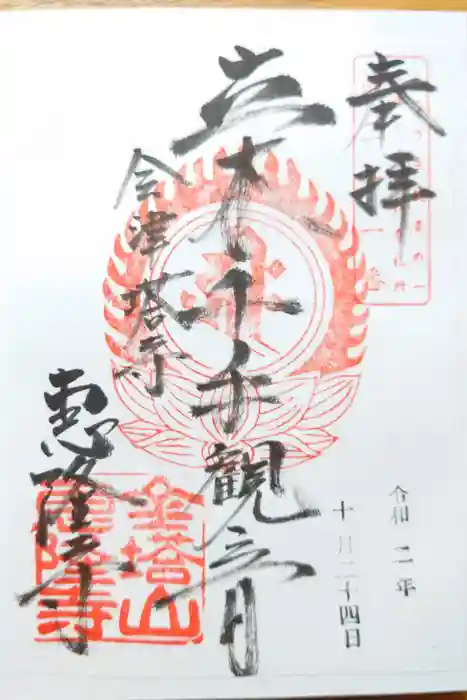 奉拝
立木千手観音
会津塔寺
恵隆寺
令和二年
十月二十四日
金塔山
恵隆寺